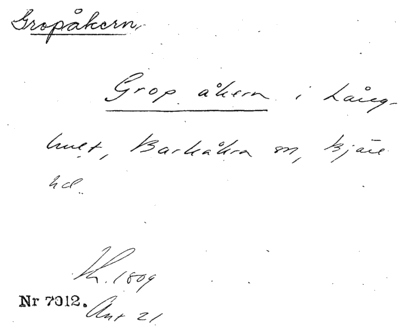 Gropåkern.
Grop åkern i Lång-
hult, Barkåkra sn, Bjäre
hd.
1809
Nr 7012.
Ant 21